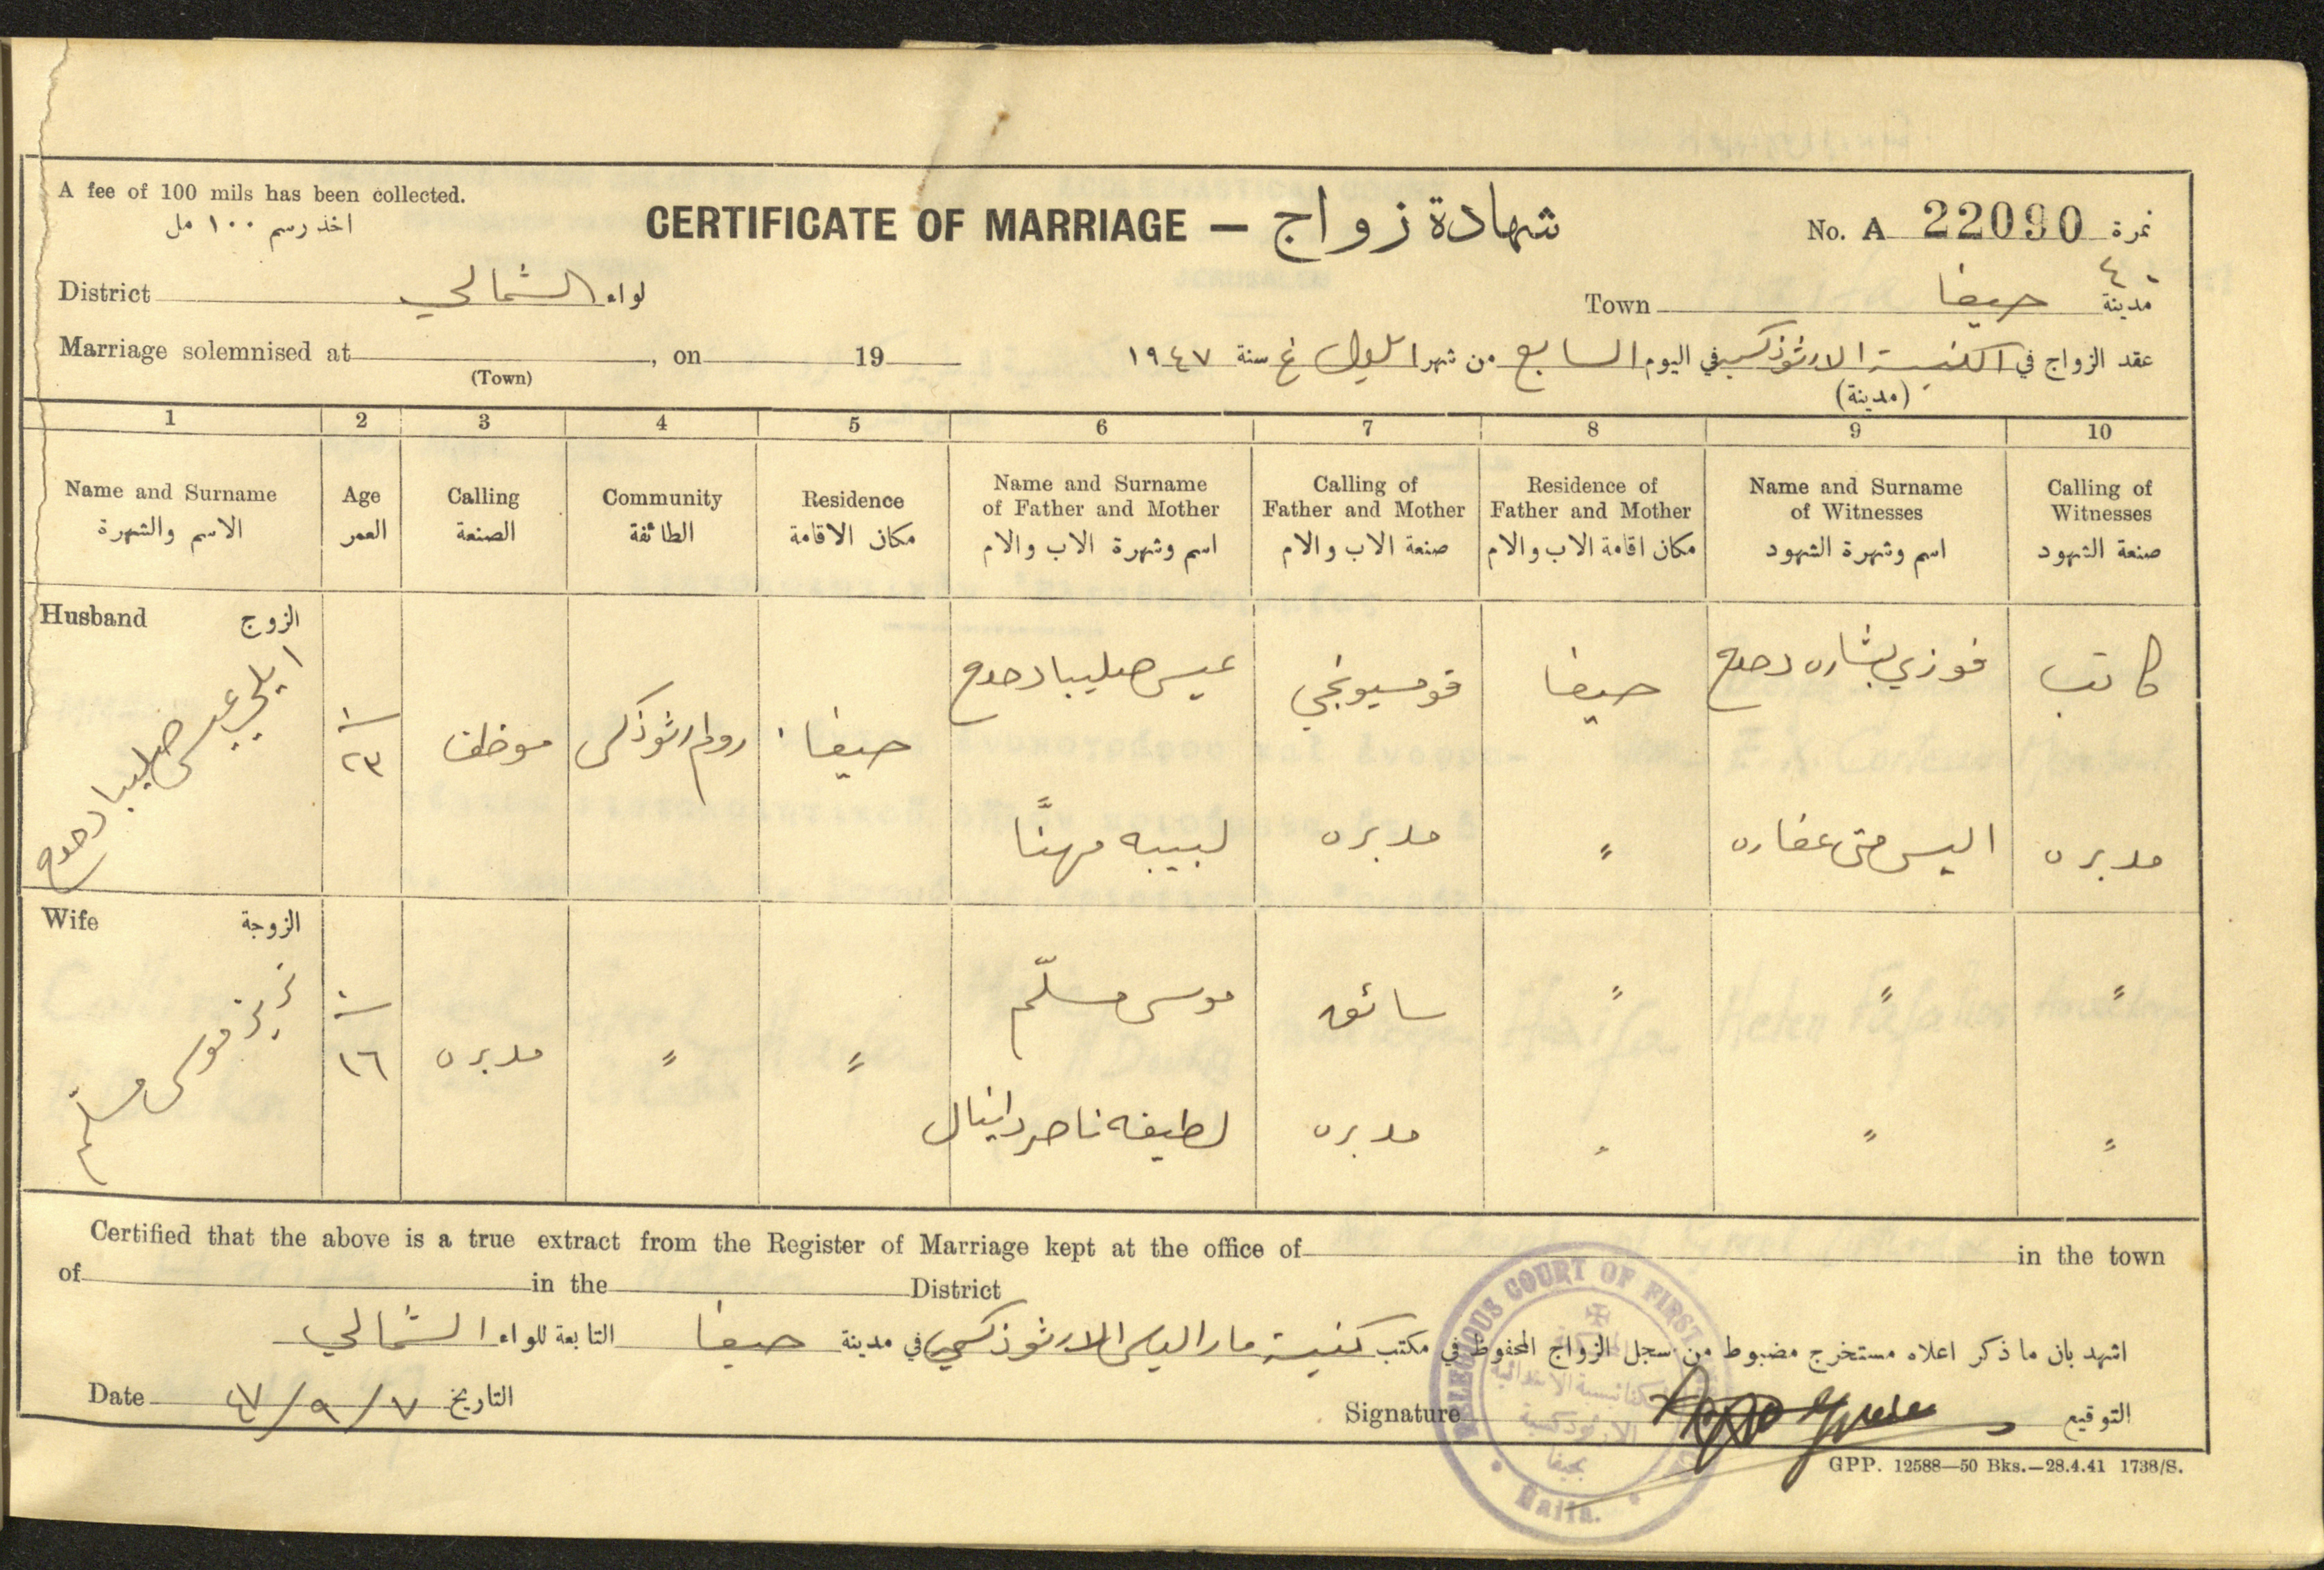 A fee of 100 mils has been collected.
اخذ رسم ١٠٠ مل
CERTIFICATE OF MARRIAGE — شهادة زواج
No. A 22090 نمرة
٤٠
District الشمالي لواء
Town حيفا مدينة
Marriage solemnised at , on 19
(Town)
عقد الزواج في الكنيسة الارثوذكسية في اليوم السابع من شهر ايلول غ سنة ١٩٤٧
(مدينة)
1 2 3 4 5 6 7 8 9 10
Name and Surname
الاسم والشهرة
Age
العمر
Calling
الصنعة
Community
الطائفة
Residence
مكان الاقامة
Name and Surname
of Father and Mother
اسم وشهرة الاب والام
Calling of
Father and Mother
صنعة الاب والام
Residence of
Father and Mother
مكان اقامة الاب والام
Name and Surname
of Witnesses
اسم وشهرة الشهود
Calling of
Witnesses
صنعة الشهود
Husband الزوج
ايلي عيسى صليبا دحدح
٢٣
موظف
روم ارثوذكس
حيفا
عيسى صليبا دحدح
قومسيونجي
حيفا
فوزي بشاره دحدح
كاتب
لبيبه مهنّا
مدبره
"
اليس متى عفاره
مدبره
Wife الزوجة
موسى مسلّم
١٦
مدبره
"
"
موسى مسلّم
سائق
"
"
"
لطيفه ناصر دانيال
مدبره
"
"
"
Certified that the above is a true extract from the Register of Marriage kept at the office of in the town
of in the District
اشهد بان ما ذكر اعلاه مستخرج مضبوط من سجل الزواج المحفوظ في مكتب كنيسة مار الياس الارثوذكسية في مدينة حيفا التابعة للواء الشمالي
Date ٤٧/٩/٧ التاريخ
Signature التوقيع
RELEGIOUS COURT OF FIRST
الكنائسية الابتدائية
الارثوذكسية
بحيفا
Haifa.
GPP. 12588—50 Bks.—28.4.41 1738/S.